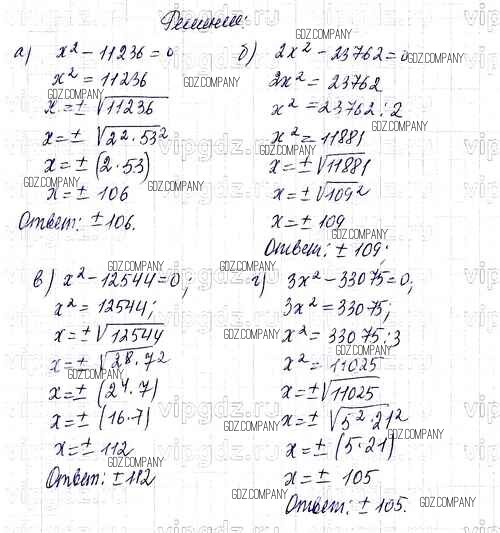 Решение:
а) x² - 11236 = 0
x² = 11236
x = ± √11236
x = ± √2²·53²
x = ± (2·53)
x = ± 106
Ответ: ± 106.
б) 2x² - 23762 = 0
2x² = 23762
x² = 23762 : 2
x² = 11881
x = ± √11881
x = ± √109²
x = ± 109
Ответ: ± 109;
в) x² - 12544 = 0;
x² = 12544;
x = ± √12544
x = ± √2⁸·7²
x = ± (2⁴·7)
x = ± (16·7)
x = ± 112
Ответ: ± 112
г) 3x² - 33075 = 0;
3x² = 33075;
x² = 33075 : 3
x² = 11025
x = ± √11025
x = ± √5²·21²
x = ± (5·21)
x = ± 105
Ответ: ± 105.
GDZ.COMPANY
vipgdz.ru